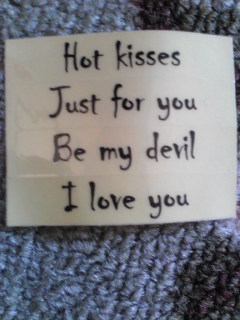 Hot kisses
Just for you
Be my devil
I love you